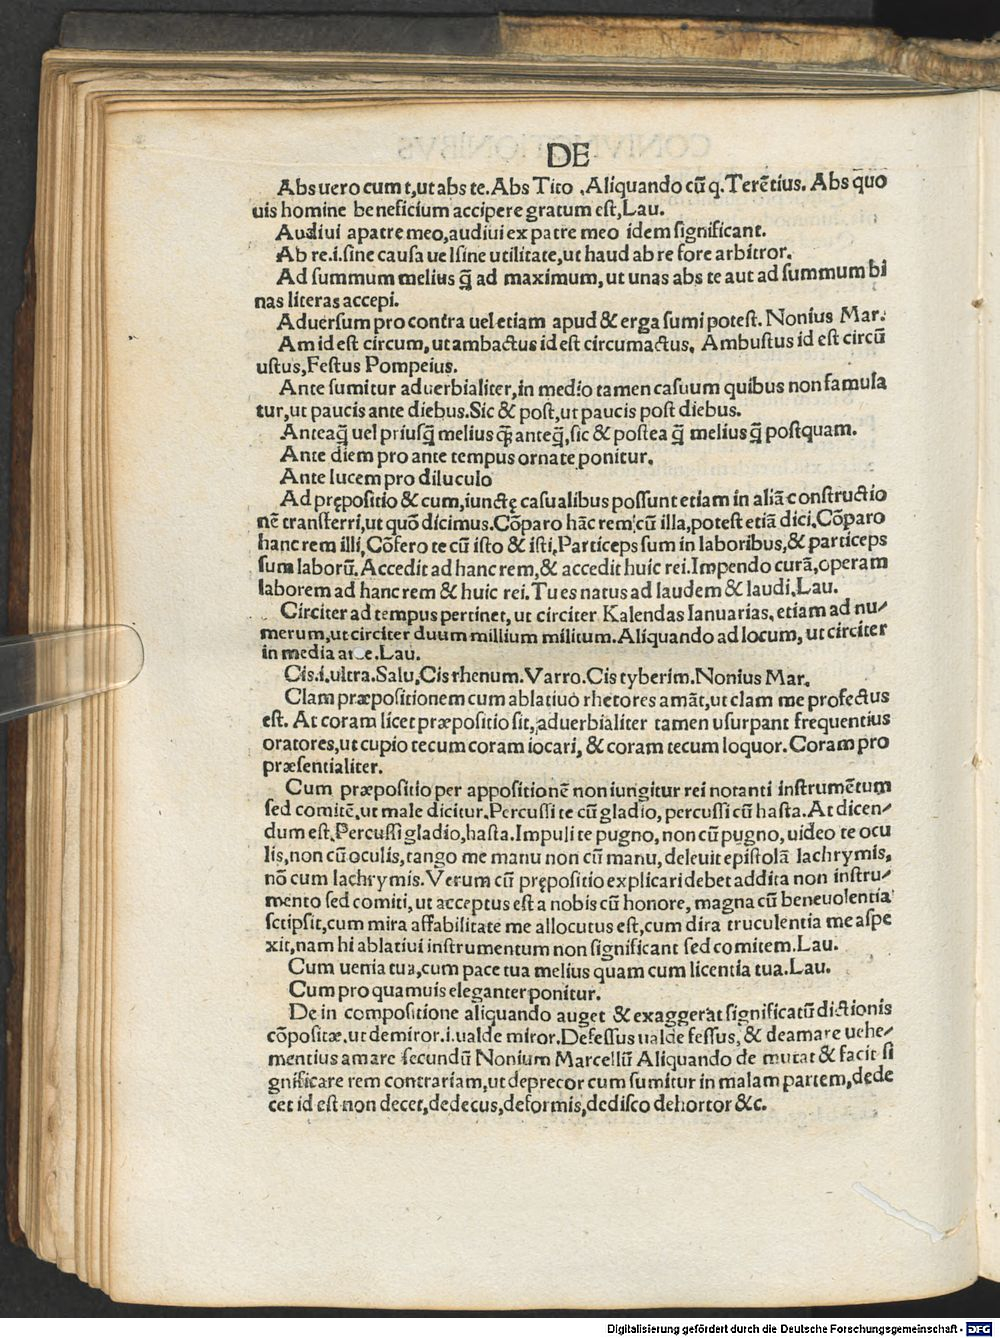 DE
Abs uero cum t, ut abs te. Abs Tito. Aliquando cū q. Terētius. Abs quo
uis homine beneficium accipere gratum est, Lau.
Audiui a patre meo, audiui ex patre meo idem significant.
Ab re .i. sine causa uel sine utilitate, ut haud ab re fore arbitror.
Ad summum melius q̄ ad maximum, ut unas abs te aut ad summum bi
nas literas accepi.
Aduersum pro contra uel etiam apud & erga sumi potest. Nonius Mar.
Am id est circum, ut ambactus id est circumactus. Ambustus id est circū
ustus, Festus Pompeius.
Ante sumitur aduerbialiter, in medio tamen casuum quibus non famula
tur, ut paucis ante diebus. Sic & post, ut paucis post diebus.
Anteaq̄ uel priusq̄ melius q̄ anteq̄, sic & postea q̄ melius q̄ postquam.
Ante diem pro ante tempus ornate ponitur.
Ante lucem pro diluculo
Ad prępositio & cum, iunctę casualibus possunt etiam in aliā constructio
nē transferri, ut quō dicimus. Cōparo hāc rem cū illa, potest etiā dici. Cōparo
hanc rem illi, Cōfero te cū isto & isti. Particeps sum in laboribus, & particeps
sum laborū. Accedit ad hanc rem, & accedit huic rei. Impendo curā, operam
laborem ad hanc rem & huic rei. Tu es natus ad laudem & laudi. Lau.
Circiter ad tempus pertinet, ut circiter Kalendas Ianuarias, etiam ad nu-
merum, ut circiter duum millium militum. Aliquando ad locum, ut circiter
in media Lau.
Cis .i. ultra. Salu. Cis rhenum. Varro. Cis tyberim. Nonius Mar.
Clam præpositionem cum ablatiuo rhetores amāt, ut clam me profectus
est. At coram licet præpositio sit, aduerbialiter tamen usurpant frequentius
oratores, ut cupio tecum coram iocari, & coram tecum loquor. Coram pro
præsentialiter.
Cum præpositio per appositionē non iungitur rei notanti instrumētum
sed comitē, ut male dicitur. Percussi te cū gladio, percussi cū hasta. At dicen-
dum est. Percussi gladio, hasta. Impuli te pugno, non cū pugno, uideo te ocu
lis, non cū oculis, tango me manu non cū manu, deleuit epistolā lachrymis,
nō cum lachrymis. Verum cū prępositio explicari debet addita non instru-
mento sed comiti, ut acceptus est a nobis cū honore, magna cū beneuolentia
sctipsit, cum mira affabilitate me allocutus est, cum dira truculentia me aspe
xit, nam hi ablatiui instrumentum non significant sed comitem. Lau.
Cum uenia tua, cum pace tua melius quam cum licentia tua. Lau.
Cum pro quamuis eleganter ponitur.
De in compositione aliquando auget & exaggerat significatū dictionis
cōpositæ, ut demiror .i. ualde miror. Defessus ualde fessus, & deamare uehe-
mentius amare secundū Nonium Marcellū Aliquando de mutat & facit si
gnificare rem contrariam, ut deprecor cum sumitur in malam partem, dede
cet id est non decet, dedecus, deformis, dedisco dehortor &c.
Digitalisierung gefördert durch die Deutsche Forschungsgemeinschaft - DFG